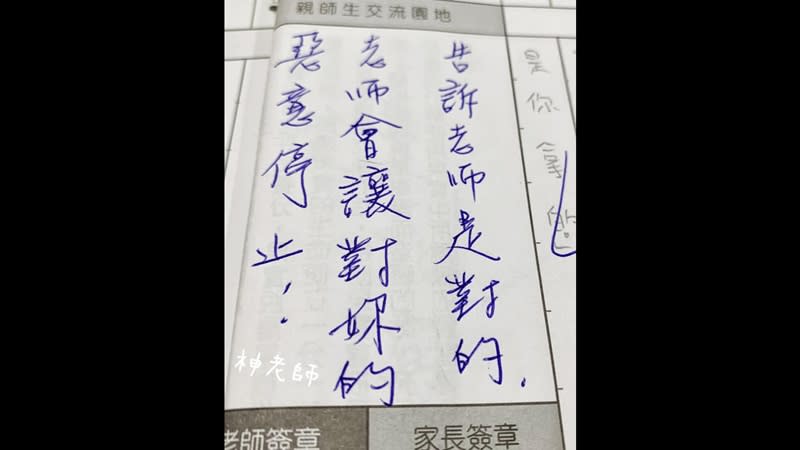 親師生交流園地
是你拿的
告訴老師是對的.
老師會讓對妳的
惡意停止!
神老師
老師簽章
家長簽章